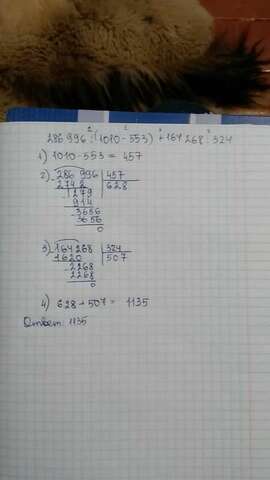 286 996 : (1010 - 553) + 164 268 : 324
1) 1010 - 553 = 457
2) 286 996 | 457
2742 | 628
1279
914
3656
3656
0
3) 164268 | 324
1620 | 507
2268
2268
0
4) 628 + 507 = 1135
Ответ: 1135